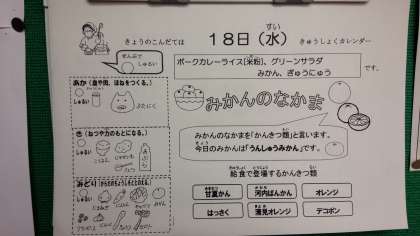 きょうのこんだては 18日(水) きゅうしょくカレンダー
ぜんぶで
しゅるい
ポークカレーライス[米粉]、グリーンサラダ
みかん、ぎゅうにゅう
です。
みかんのなかま
みかんのなかまを「かんきつ類」と言います。
今日のみかんは「うんしゅうみかん」です。
給食で登場するかんきつ類
甘夏かん 河内ばんかん オレンジ
はっさく 清見オレンジ デコポン
あか(血や肉、ほねをつくる。)
しゅるい
ぶたにく
き(ねつや力のもとになる。)
しゅるい
じゃがいも
みどり(からだのちょうしをととのえる。)
しゅるい